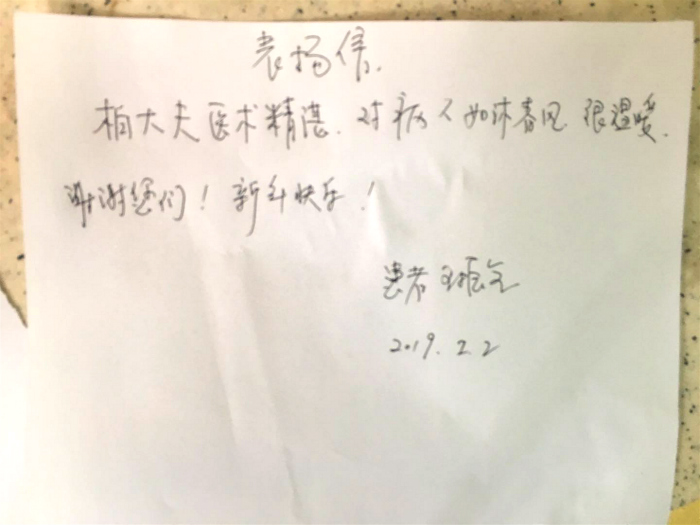 表扬信.
柏大夫医术精湛.对病人如沐春风 很温暖.
谢谢您们！新年快乐！
患者
2019.2.2